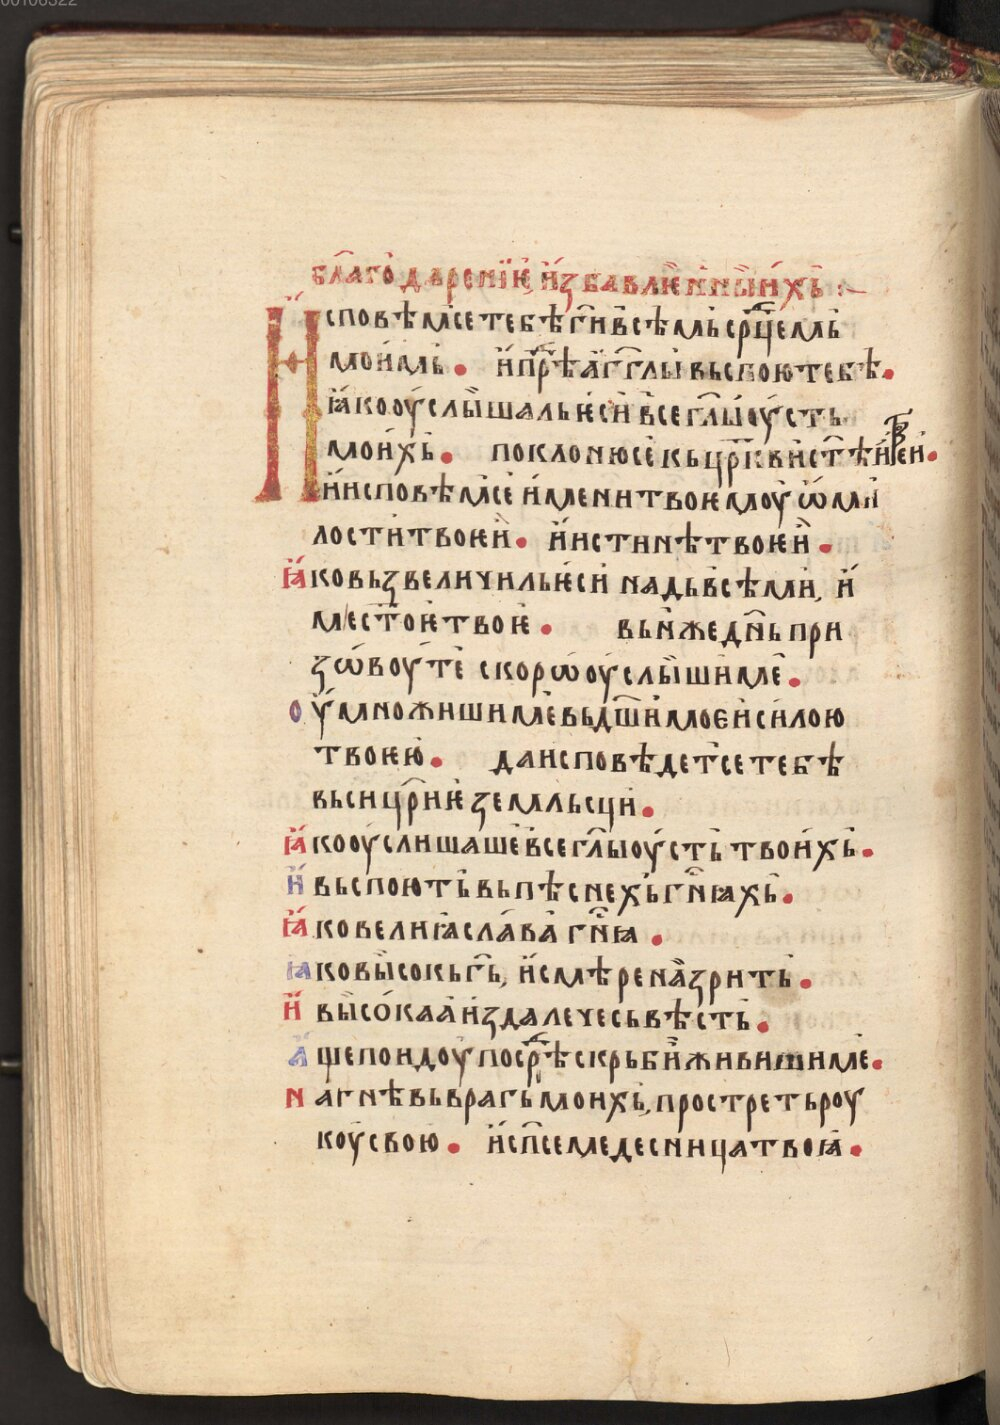 00106322
бл҃аго́дарені́ѥ, и҆збавлѥ́нныи́хь :~
И҆сповѣ́мсе тебѣ̀ г҃и в҆сѣ́мь ср҃цемь
мои́мь. и҆ прⷣѣ а҆гг҃лы̀ вьспою тебѣ̀.
ꙗ҆́ко оу҆слы́шаль ѥ҆сѝ в҆се гл҃ы оу҆́сть
мои́хь. поклонюсе кь цр҃кви ст҃ѣи твⷪ҇еи.
и҆ исповѣ́мсе и҆́мени твоѥмоу̀ ѡ҆ ми
лости твоѥи. и҆ и҆стинѣ твоѥи.
ꙗ҆́ко вьзвеличиль ѥ҆сѝ надь в҆сѣми, и҆́
мⷭ҇ес҃тоѥ твоѥ. вьн҆же дн҃ь при
зѡвоу́ те скорѡ оу҆слы́ши ме.
оу҆множиши ме вь дш҃и моѥи силою
твоѥю. да исповѣдетсе тебѣ
вьси цр҃иѥ земльсци.
ꙗ҆́ко оу҆слишаше в҆се гл҃ы оу҆́сть твои́хь.
и҆ вьспоють вь пѣснехь гн҃ꙗхь.
ꙗ҆́ко велиꙗ сла́ва гн҃ꙗ.
ꙗко высокь г҃ь, и҆ смѣренаа̀ зрить.
и҆ высо́каа и҆здалече сьвѣсть.
а҆́ще поидоу̀ посрⷣѣ скрьби́ живиши ме.
на гнѣвь врагь моихь, простреть роу
коу̀ свою. и҆ сп҃се ме десница твоꙗ.